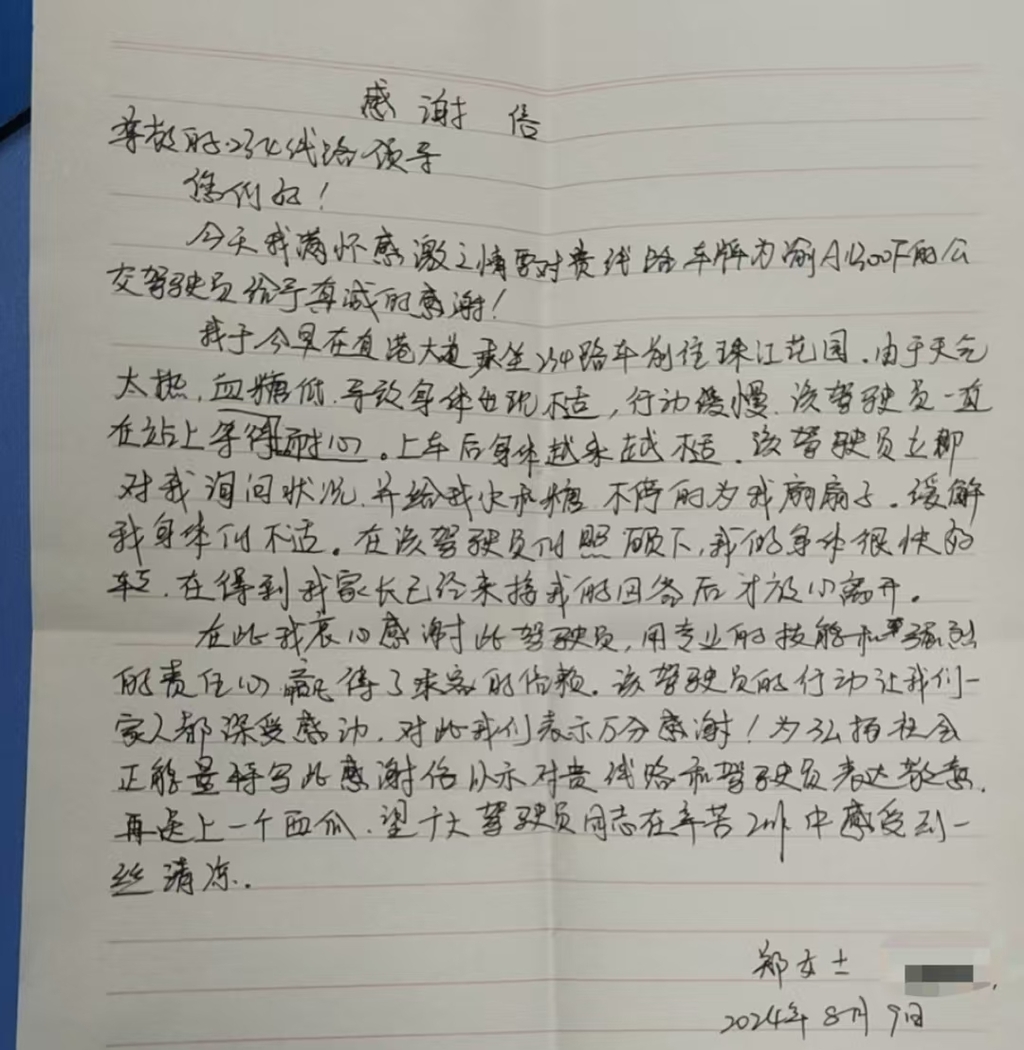 感谢信
尊敬的234线路领导
您们好！
今天我满怀感激之情要对贵线路车牌为渝A1300F的公
交驾驶员给予真诚的感谢！
我于今早在直港大道乘坐234路车前往珠江花园.由于天气
太热,血糖低.导致身体出现不适,行动缓慢.该驾驶员一直
在站上等得耐心。上车后身体越来越不适.该驾驶员立即
对我询问状况.并给我火水糖.不停的为我扇扇子。缓解
我身体的不适。在该驾驶员的照顾下,我的身体很快的
在得到我家长已经来接我的回答后才放心离开。
在此我衷心感谢此驾驶员,用专业的技能和强烈
的责任心赢得了乘客的信赖.该驾驶员的行动让我们一
家人都深受感动.对此我们表示万分感谢！为弘扬社会
正能量特写此感谢信以示对贵线路和驾驶员表达敬意.
再送上一个西瓜.望广大驾驶员同志在辛苦工作中感受到一
丝清凉.
郑女士
2024年8月9日